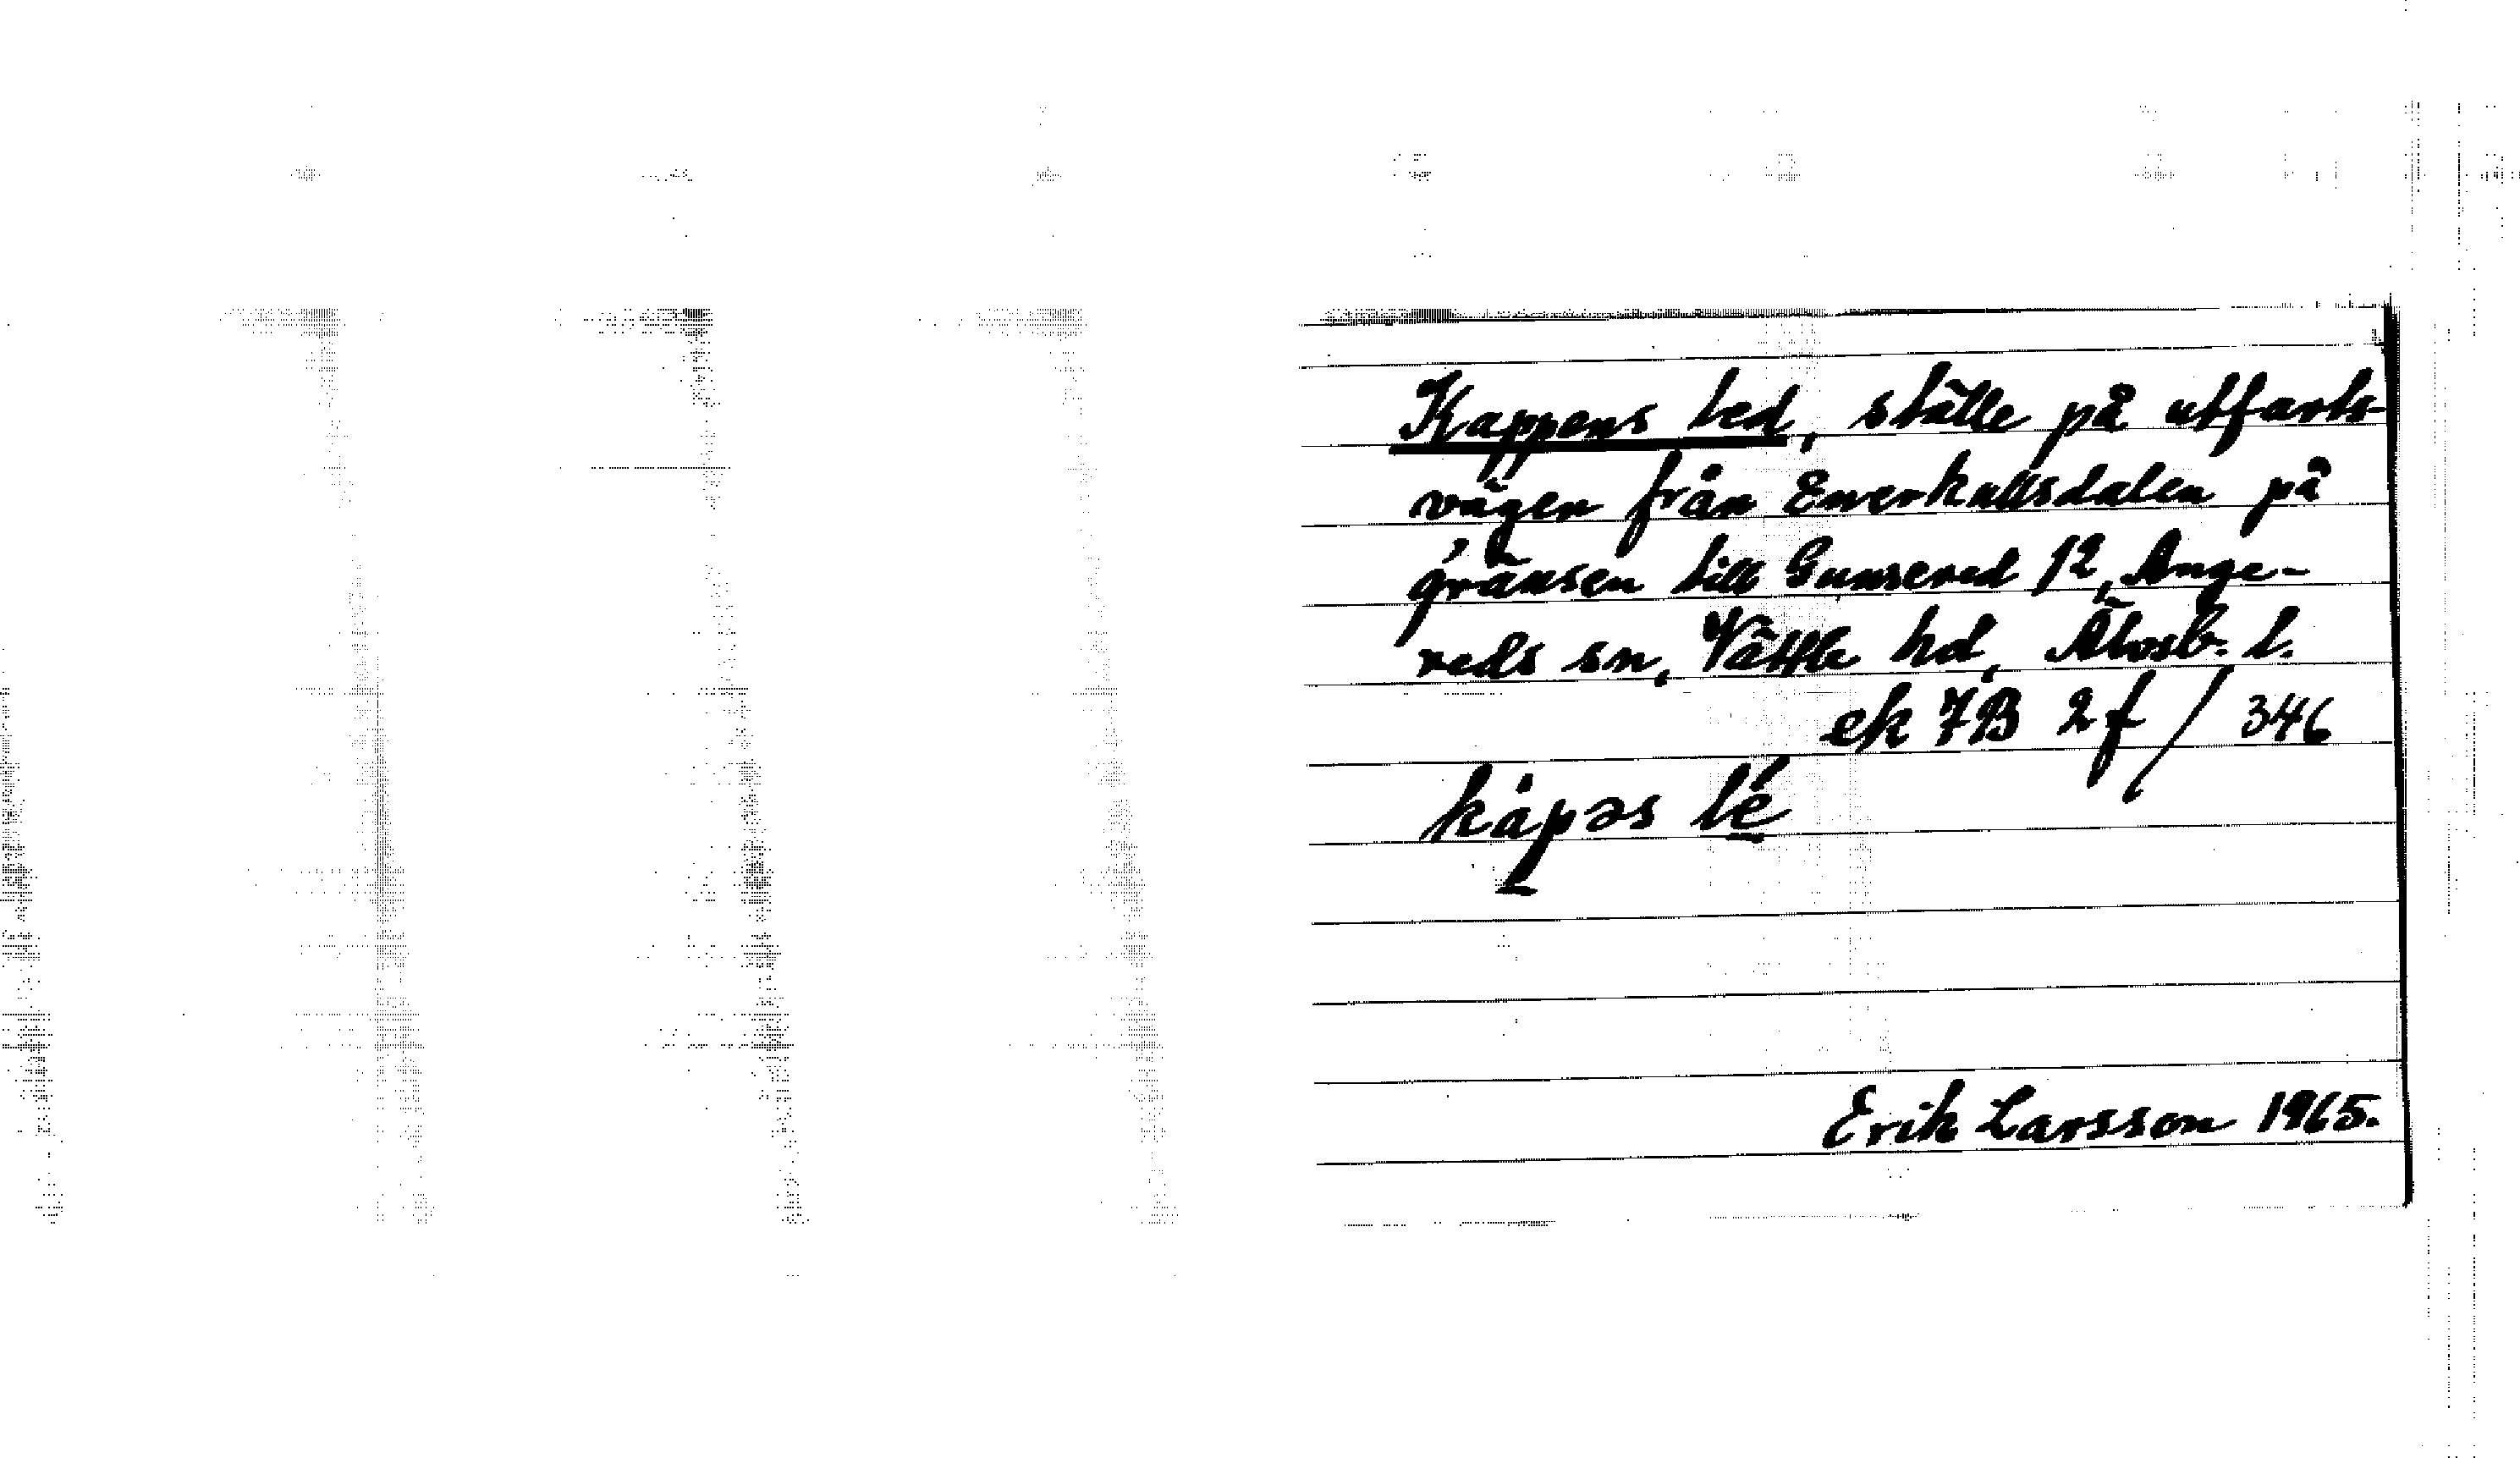 Kappens led, ställe på utfarts-
vägen från Enerkullsdalen på
gränsen till Gunnered 12, Ange-
reds sn, Vättle hd, Älvsb. l.
ek 7B 2f / 346
kápəs lé
Erik Larsson 1965.